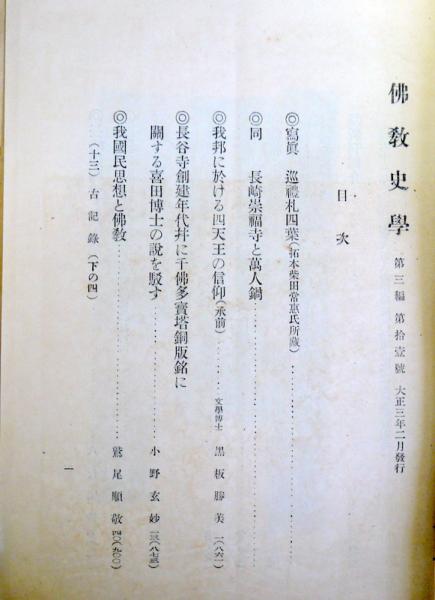 佛敎史學 第三編 第拾壹號 大正三年二月發行
目次
◎寫眞 巡禮札四葉(拓本柴田常惠氏所藏)
◎同 長崎崇福寺と萬人鍋
◎我邦に於ける四天王の信仰(承前)……文學博士 黑板勝美 一(八六一)
◎長谷寺創建年代幷に千佛多寶塔銅版銘に
關する喜田博士の說を駁す……小野玄妙 一三(八七三)
◎我國民思想と佛敎……鷲尾順敬 四〇(九〇〇)
(十三) 古記錄(下の四)
一